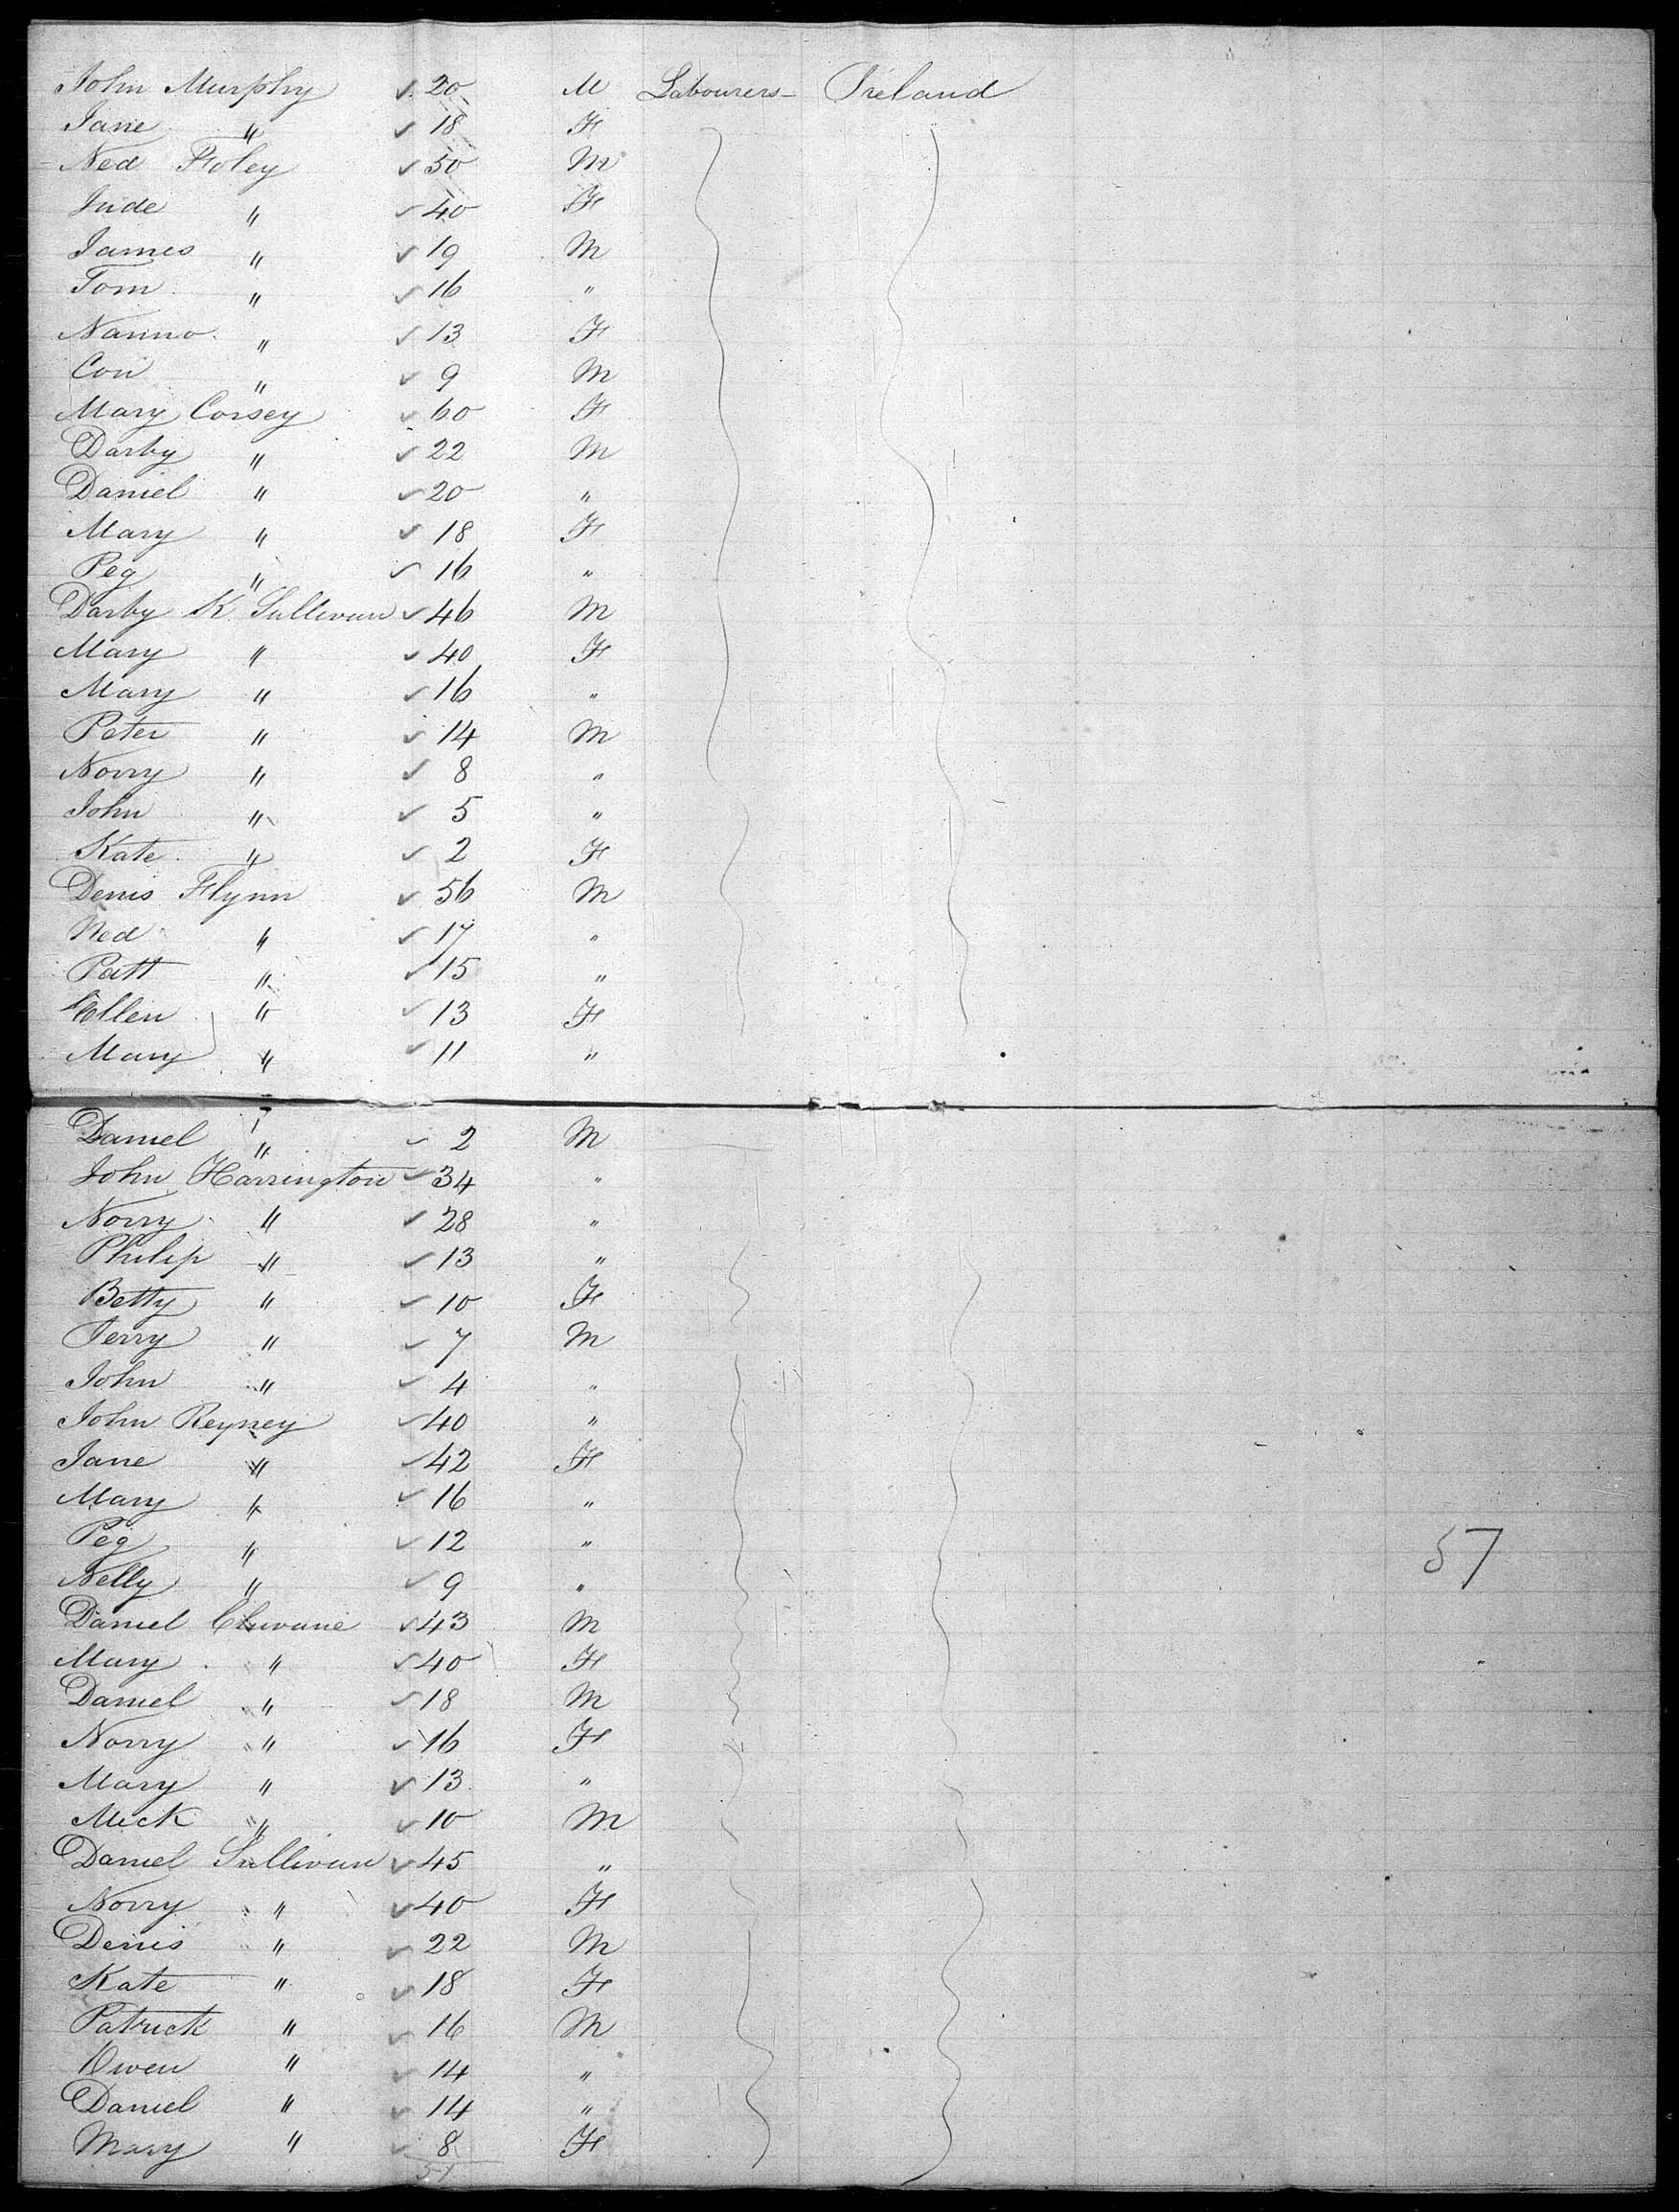 John Murphy 20 M Labourers Ireland
Jane " 18 F
Ned Foley 50 M
Jude " 40 F
James " 19 M
Tom " 16 "
Nanno " 13 F
Con " 9 M
Mary Corsey 60 F
Darby " 22 M
Daniel " 20 "
Mary " 18 F
Peg " 16 "
Darby K. Sullivan 46 M
Mary " 40 F
Mary " 16 "
Peter " 14 M
Norry " 8 "
John " 5 "
Kate " 2 F
Denis Flynn 56 M
Ned " 17 "
Patt " 15 "
Ellen " 13 F
Mary " 11 "
Daniel " 2 M
John Harrington 34 "
Norry " 28 "
Philip " 13 "
Betty " 10 F
Jerry " 7 M
John " 4 "
John Reyney 40 "
Jane " 42 F
Mary " 16 "
Peg " 12 "
Nelly " 9 "
57
Daniel 43 M
Mary " 40 F
Daniel " 18 M
Norry " 16 F
Mary " 13 "
Mick " 10 M
Daniel Sullivan 45 "
Norry " 40 F
Denis " 22 M
Kate " 18 F
Patrick " 16 M
Owen " 14 "
Daniel " 14 "
Mary " 8 F
51